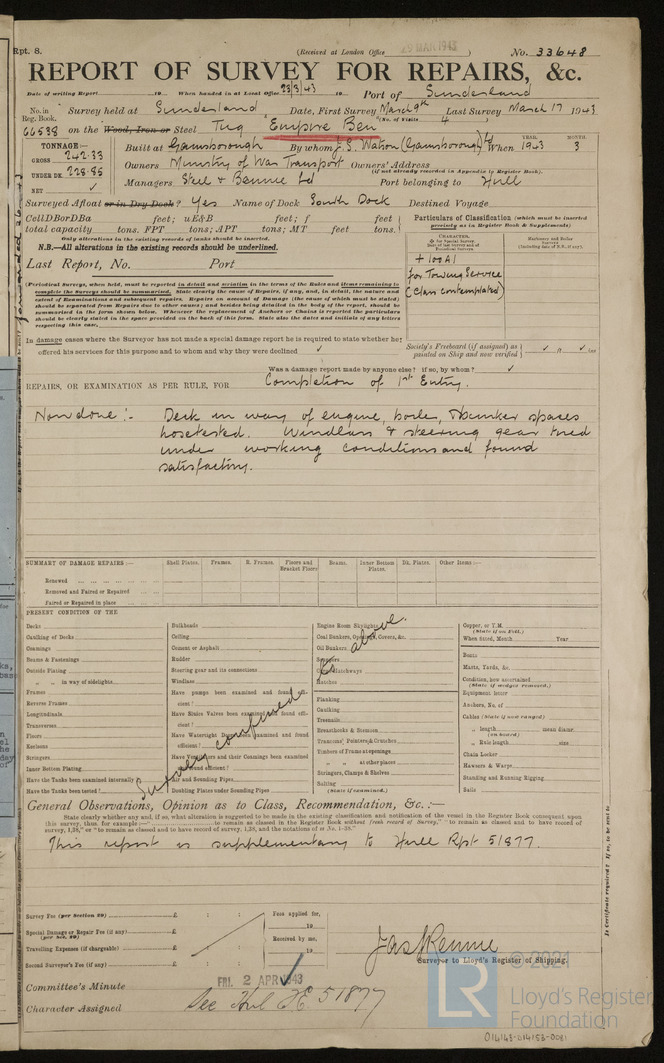 Rpt. 8.
(Received at London Office)
No. 33648
REPORT OF SURVEY FOR REPAIRS, &c.
Date of writing Report 19 When handed in at Local Office 23/3/43 19 Port of Sunderland
No. in Reg. Book. Survey held at Sunderland Date, First Survey March 9th Last Survey March 17 1943
(No. of Visits 4)
66589 on the Wood, Iron or Steel Tug "Empire Ben"
TONNAGE:—
GROSS 242.33
UNDER DK. 228.86
NET ✓
Built at Gainsborough By whom J. S. Watson (Gainsborough) Ld When 1943 3
YEAR. MONTH.
Owners Ministry of War Transport Owners' Address
(if not already recorded in Appendix to Register Book).
Managers Steel & Bennie Ld Port belonging to Hull
Surveyed Afloat or in Dry Dock? Yes Name of Dock South Dock Destined Voyage
Cell DB or DBa feet; uE&B feet; f feet
total capacity tons. FPT tons; APT tons; MT feet tons.
Only alterations in the existing records of tanks should be inserted.
N.B.—All alterations in the existing records should be underlined.
Last Report, No. Port
Particulars of Classification (which must be inserted precisely as in Register Book & Supplements)
CHARACTER.
+ 100A1
for Towing Service
(Class contemplated)
(Periodical Surveys, when held, must be reported in detail and seriatim in the terms of the Rules and items remaining to
complete the Surveys should be summarised. State clearly the cause of Repairs, if any, and, in detail, the nature and
extent of Examinations and subsequent repairs. Repairs on account of Damage (the cause of which must be stated)
should be separated from Repairs due to other causes; and besides being detailed in the body of the report, should be
summarised in the form shown below. Whenever the replacement of Anchors or Chains is reported the particulars
should be clearly stated in the space provided on the back of this form. State also the dates and initials of any letters
respecting this case.)
In damage cases where the Surveyor has not made a special damage report he is required to state whether he
offered his services for this purpose and to whom and why they were declined ✓
Society's Freeboard (if assigned) as painted on Ship and now verified
Was a damage report made by anyone else? if so, by whom? ✓
REPAIRS, OR EXAMINATION AS PER RULE, FOR Completion of 1st Entry.
Now done:- Deck in way of engine, boiler, & bunker spaces
hosetested. Windlass & steering gear tried
under working conditions and found
satisfactory.
SUMMARY OF DAMAGE REPAIRS:—
Shell Plates. Frames. R. Frames. Floors and Bracket Floors Beams. Inner Bottom Plates. Dk. Plates. Other Items:—
Renewed
Removed and Faired or Repaired
Faired or Repaired in place
PRESENT CONDITION OF THE
Decks
Caulking of Decks
Coamings
Beams & Fastenings
Outside Plating
" " in way of sidelights
Frames
Reverse Frames
Longitudinals
Transverses
Floors
Keelsons
Stringers
Inner Bottom Plating
Have the Tanks been examined internally?
Have the Tanks been tested?
Bulkheads
Ceiling
Cement or Asphalt
Rudder
Steering gear and its connections
Windlass
Have pumps been examined and found efficient?
Have Sluice Valves been examined and found efficient?
Have Watertight Doors been examined and found efficient?
Have Ventilators and their Coamings been examined and found efficient?
Air and Sounding Pipes
Doubling Plates under Sounding Pipes
Engine Room Skylights
Coal Bunkers, Openings, Covers, &c.
Oil Bunkers
Scuppers
Cargo Hatchways
Hatches
Planking
Caulking
Treenails
Breasthooks & Stemson
Transoms, Pointers, & Crutches
Timbers of Frame at openings
" " at other places
Stringers, Clamps & Shelves
Salting
(State if examined.)
Copper, or Y.M.
(State if on Felt.)
When dated, Month Year
Boats
Masts, Yards, &c.
Condition, how ascertained
(State if wedges removed.)
Equipment letter
Anchors, No. of
Cables (State if now ranged)
" length mean diamr.
(on board)
" Rule length size
Chain Locker
Hawsers & Warps
Standing and Running Rigging
Sails
Survey confined to as above.
General Observations, Opinion as to Class, Recommendation, &c.:—
State clearly whether any, and if so, what alteration is suggested to be made in the existing classification and notification of the vessel in the Register Book consequent upon
this survey, thus, for example:— to remain as classed in the Register Book without fresh record of Survey," "to remain as classed and to have record of
survey, 1,38," or "to remain as classed and to have record of survey, 1,38, and the notations of
This report is supplementary to Hull Rpt 51877.
Survey Fee (per Section 29) £ : :
Special Damage or Repair Fee (if any) £ : :
(per Sec. 29)
Travelling Expenses (if chargeable) £ : :
Second Surveyor's Fee (if any) £ : :
Fees applied for,
19
Received by me,
19
Jas J Rennie
Surveyor to Lloyd's Register of Shipping.
Committee's Minute FRI. 2 APR 1943
Character Assigned See Hul F.E. 51877
Is Certificate required? If so, to be sent to
© 2021
LR
Lloyd's Register
Foundation
014143-014153-0081